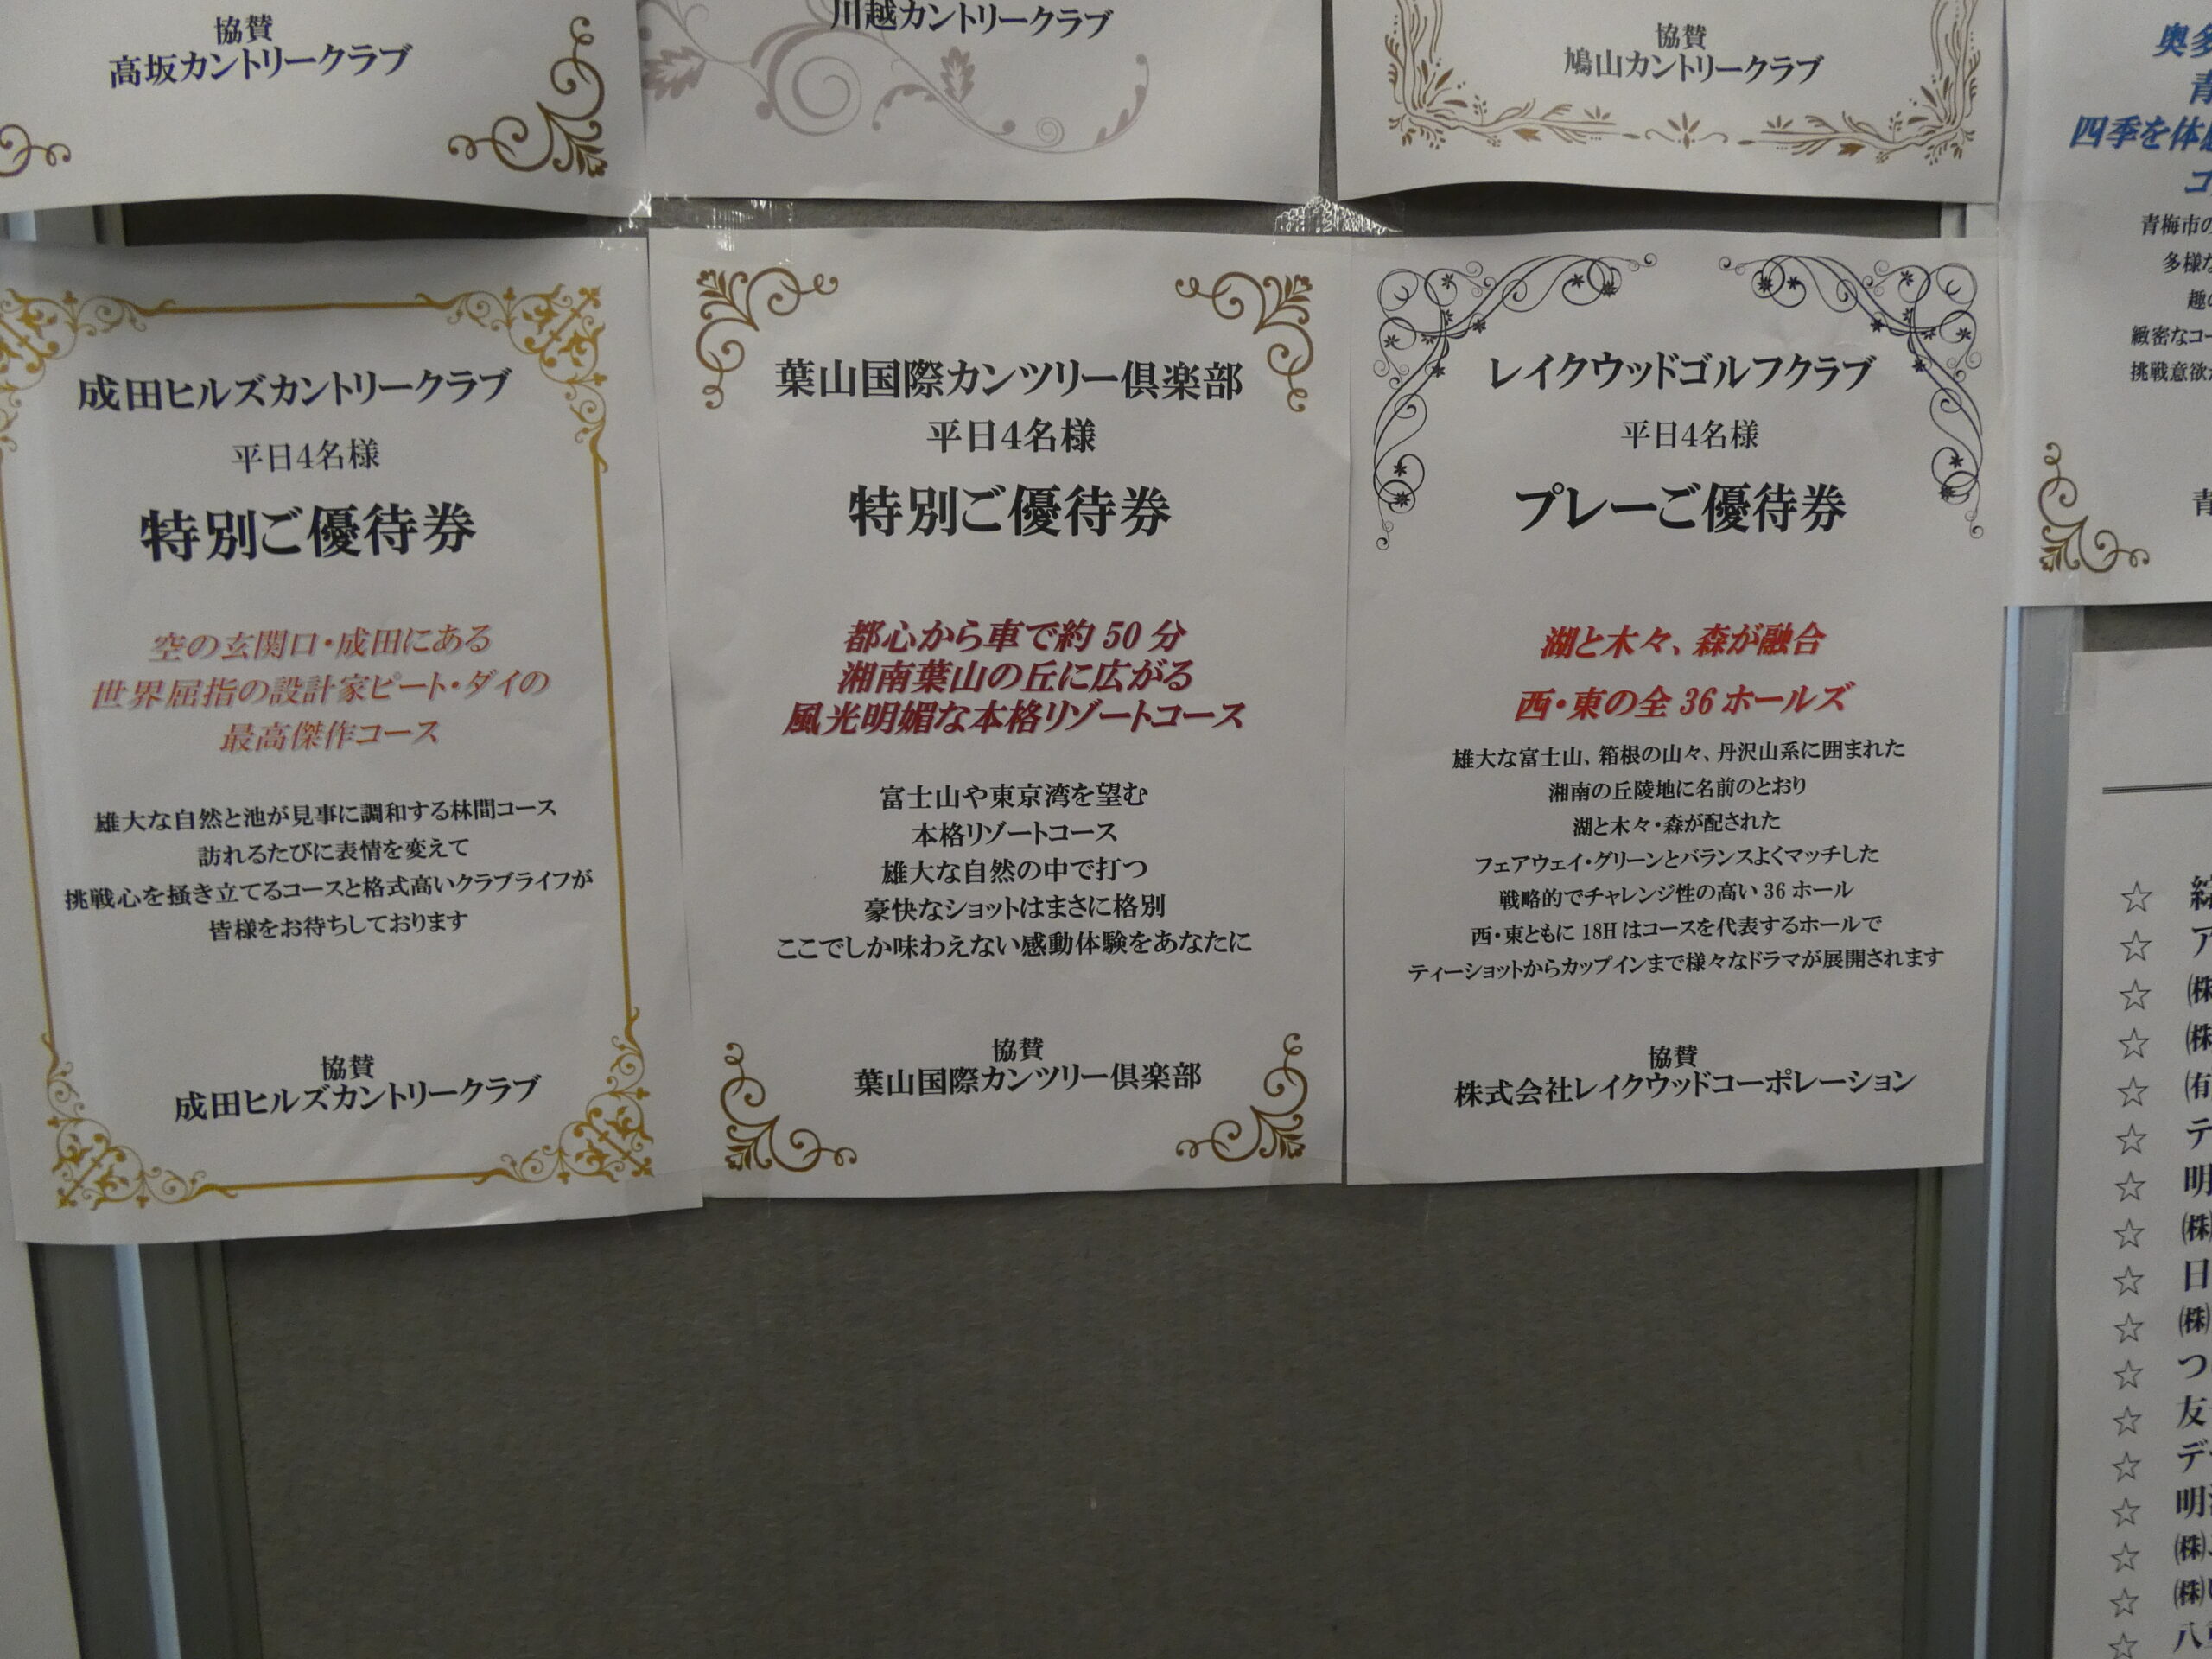 協賛
高坂カントリークラブ
川越カントリークラブ
協賛
鳩山カントリークラブ
成田ヒルズカントリークラブ
平日4名様
特別ご優待券
空の玄関口・成田にある
世界屈指の設計家ピート・ダイの
最高傑作コース
雄大な自然と池が見事に調和する林間コース
訪れるたびに表情を変えて
挑戦心を掻き立てるコースと格式高いクラブライフが
皆様をお待ちしております
協賛
成田ヒルズカントリークラブ
葉山国際カンツリー倶楽部
平日4名様
特別ご優待券
都心から車で約 50 分
湘南葉山の丘に広がる
風光明媚な本格リゾートコース
富士山や東京湾を望む
本格リゾートコース
雄大な自然の中で打つ
豪快なショットはまさに格別
ここでしか味わえない感動体験をあなたに
協賛
葉山国際カンツリー倶楽部
レイクウッドゴルフクラブ
平日4名様
プレーご優待券
湖と木々、森が融合
西・東の全 36 ホールズ
雄大な富士山、箱根の山々、丹沢山系に囲まれた
湘南の丘陵地に名前のとおり
湖と木々・森が配された
フェアウェイ・グリーンとバランスよくマッチした
戦略的でチャレンジ性の高い 36 ホール
西・東ともに 18H はコースを代表するホールで
ティーショットからカップインまで様々なドラマが展開されます
協賛
株式会社レイクウッドコーポレーション
奥多
青
四季を体感
コ
青梅市の
多様な
趣の
緻密なコー
挑戦意欲が
青
☆
☆ ア
☆ ㈱
☆ ㈱
☆ ㈲
☆ テ
☆ 明
☆ ㈱
☆ 日
☆ ㈱
☆ つ
☆ 友
☆ デ
☆ 明
☆ ㈱
☆ ㈱
☆ 八